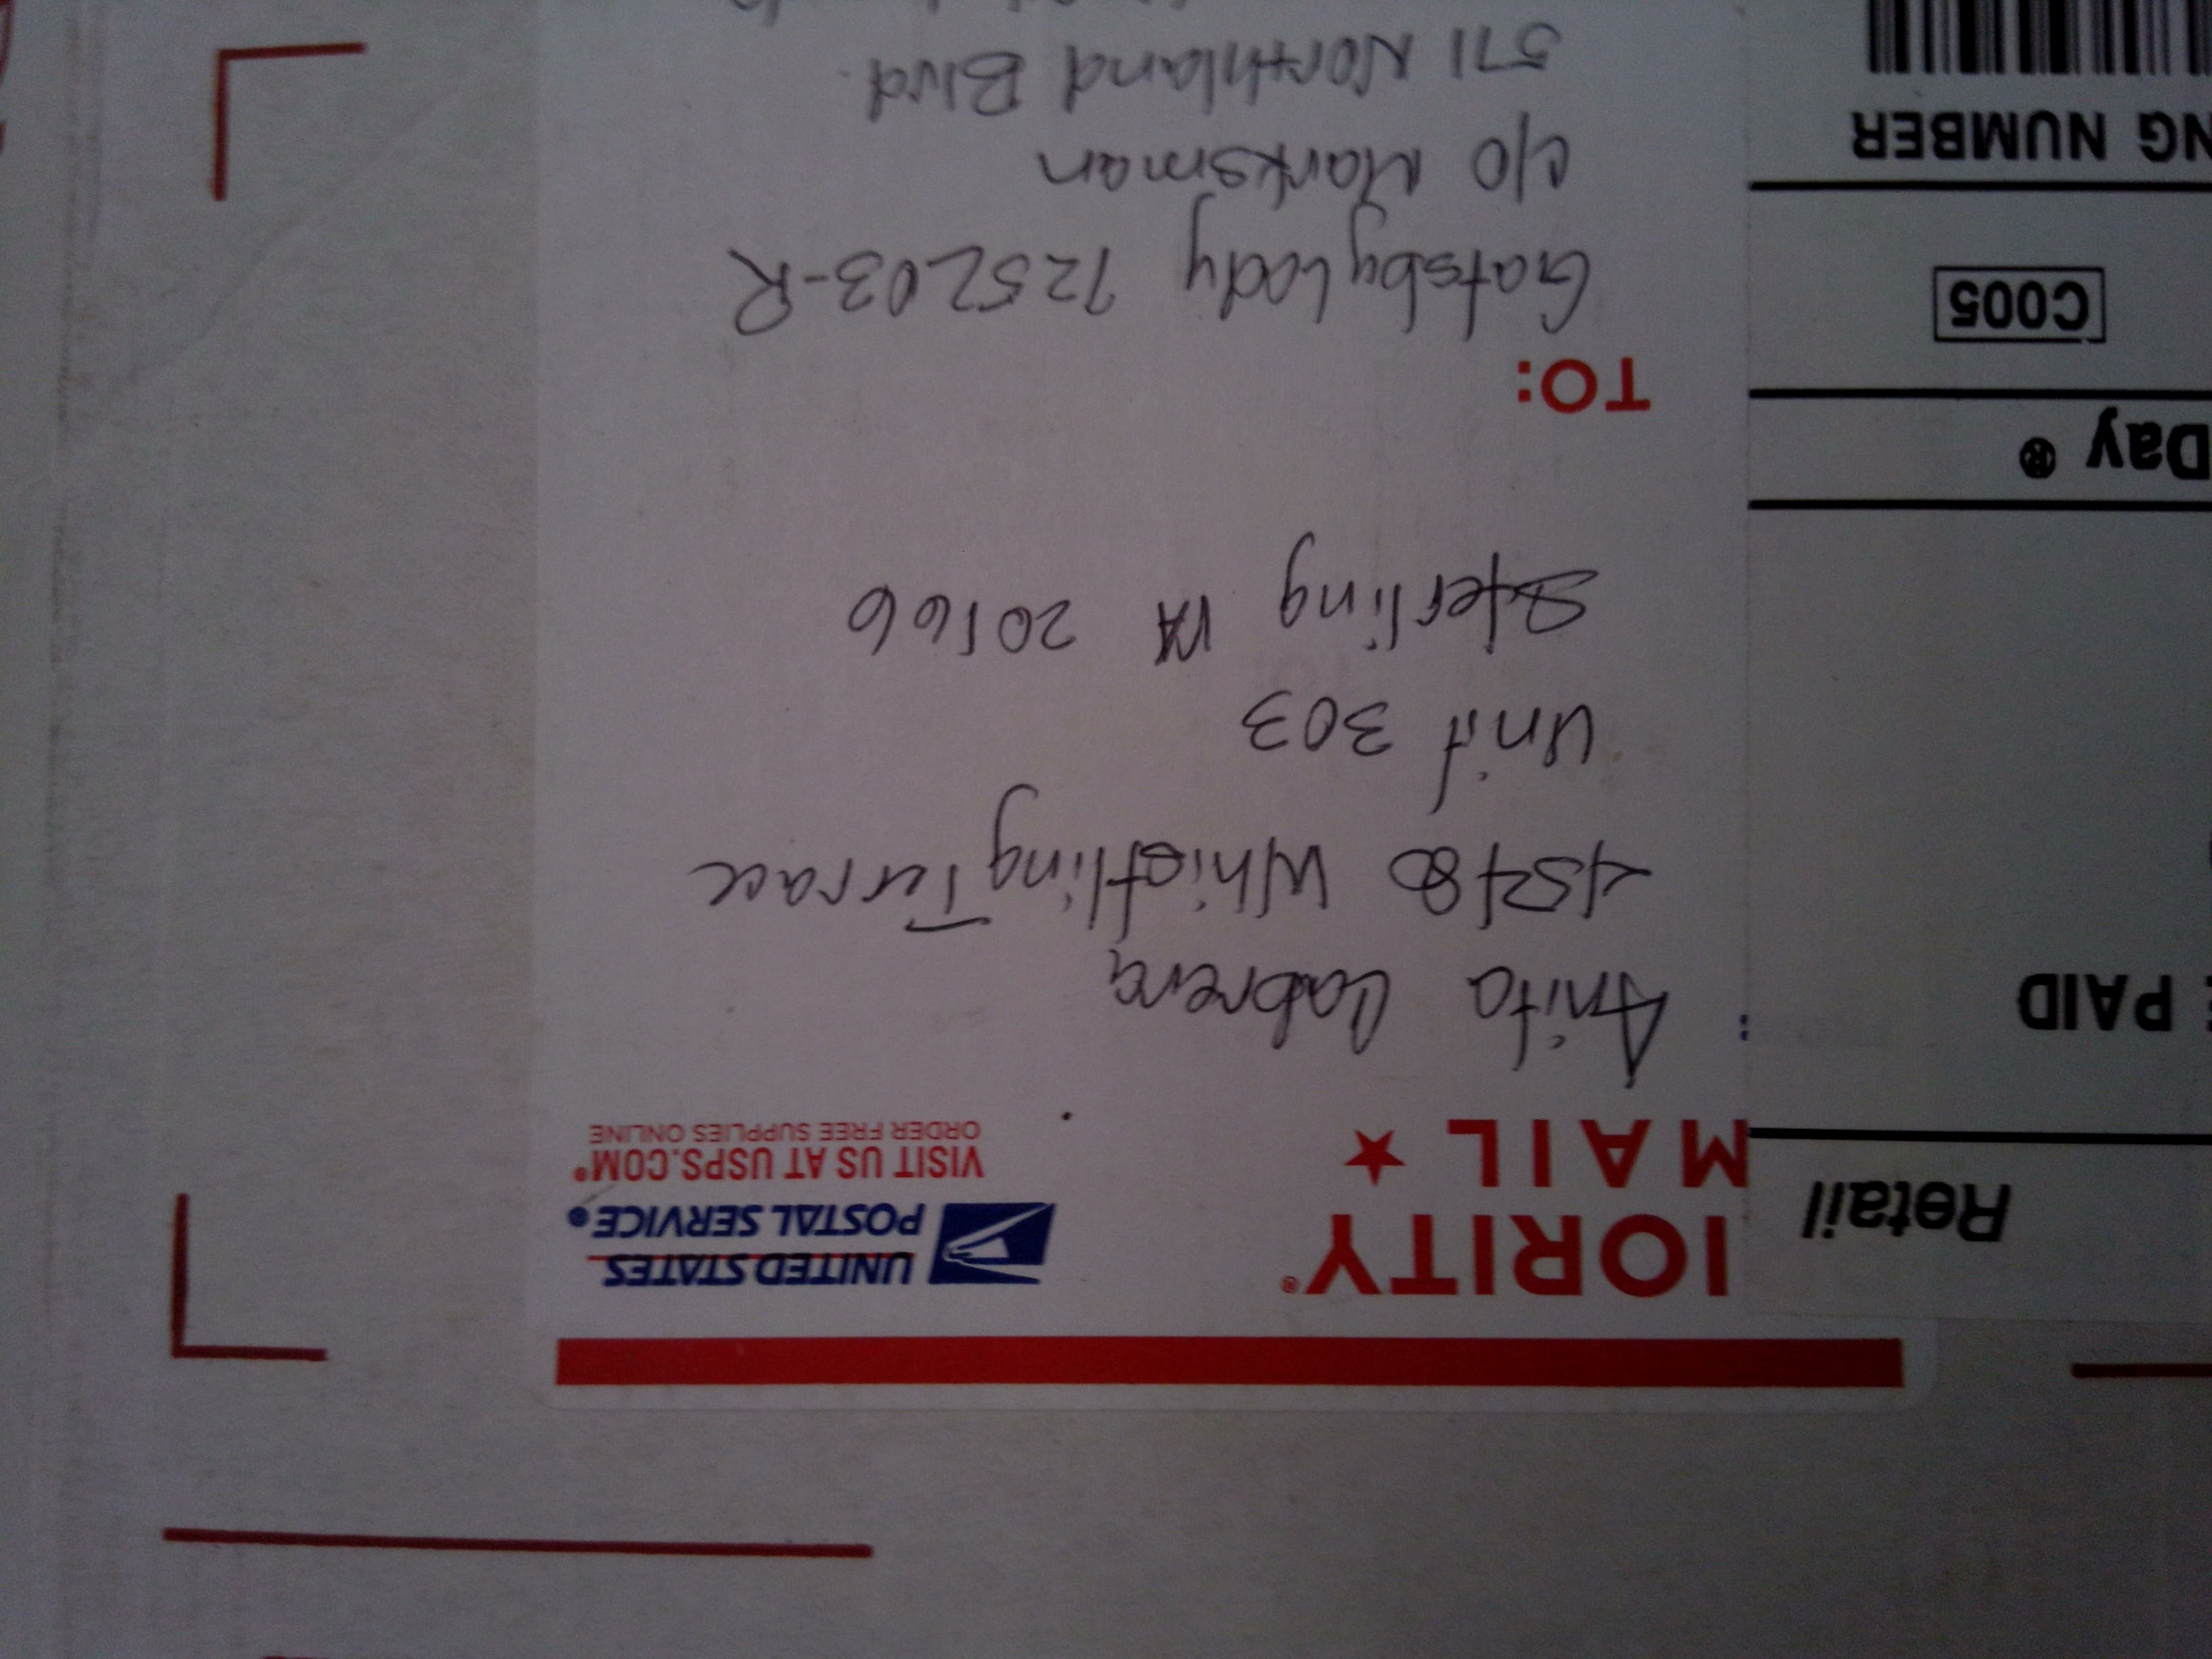 Retail
IORITY®
MAIL ★
UNITED STATES
POSTAL SERVICE®
VISIT US AT USPS.COM®
ORDER FREE SUPPLIES ONLINE
PAID
Anita Cabrera
45480 Whistling Terrace
Unit 303
Sterling VA 20166
Day ®
TO:
C005
Gatsbylady 725203-R
c/o Marksman
571 Northland Blvd.
NG NUMBER